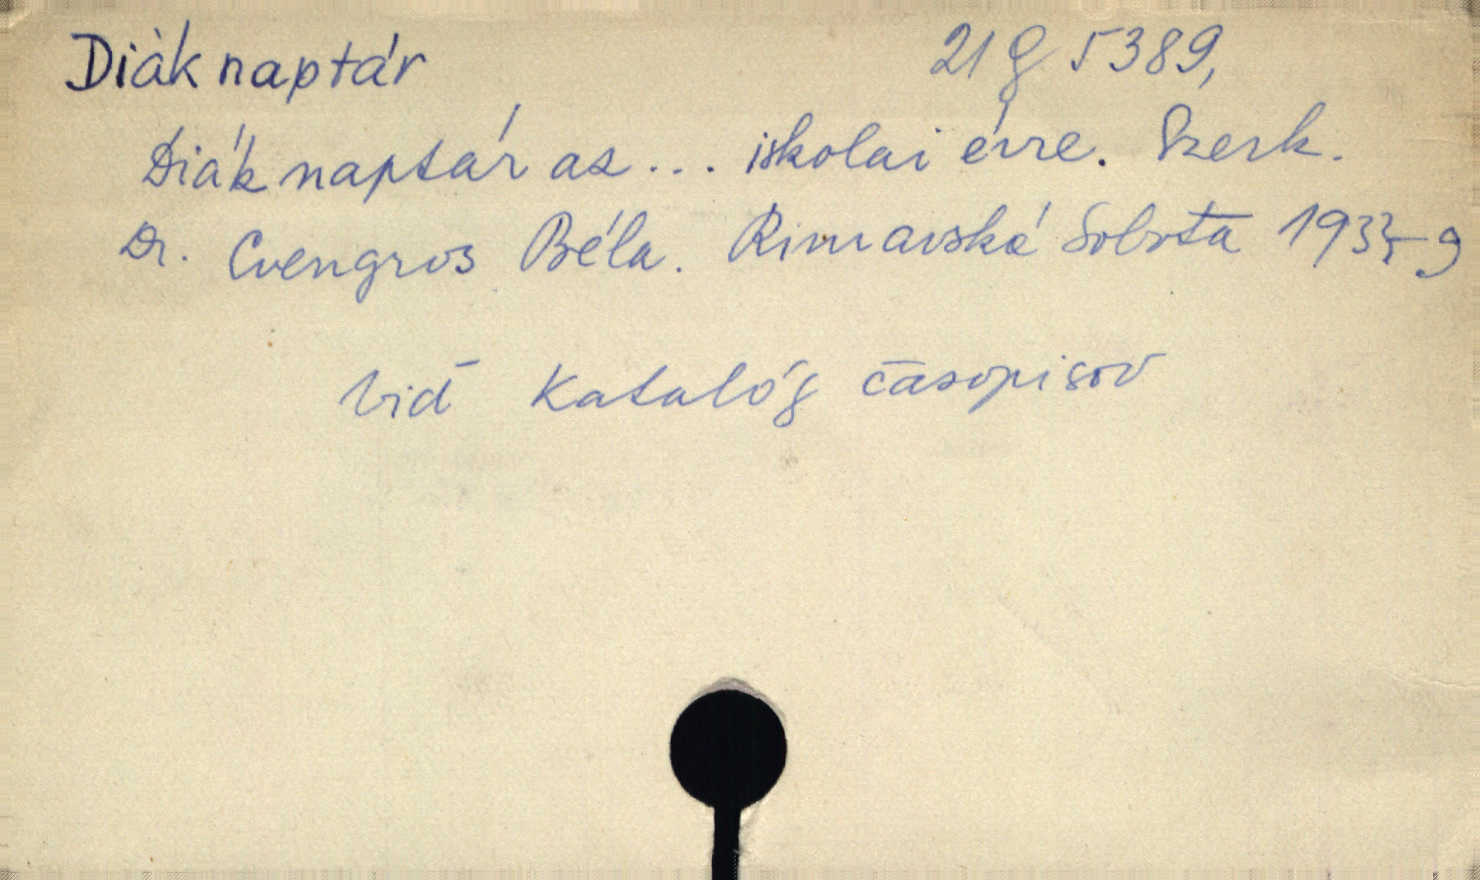 Diák naptár 21 G 5389,
Diák naptár az ... iskolai évre. Szerk.
Dr. Cvengros Béla. Rimavská Sobota 1933-9
Viď Katalóg časopisov